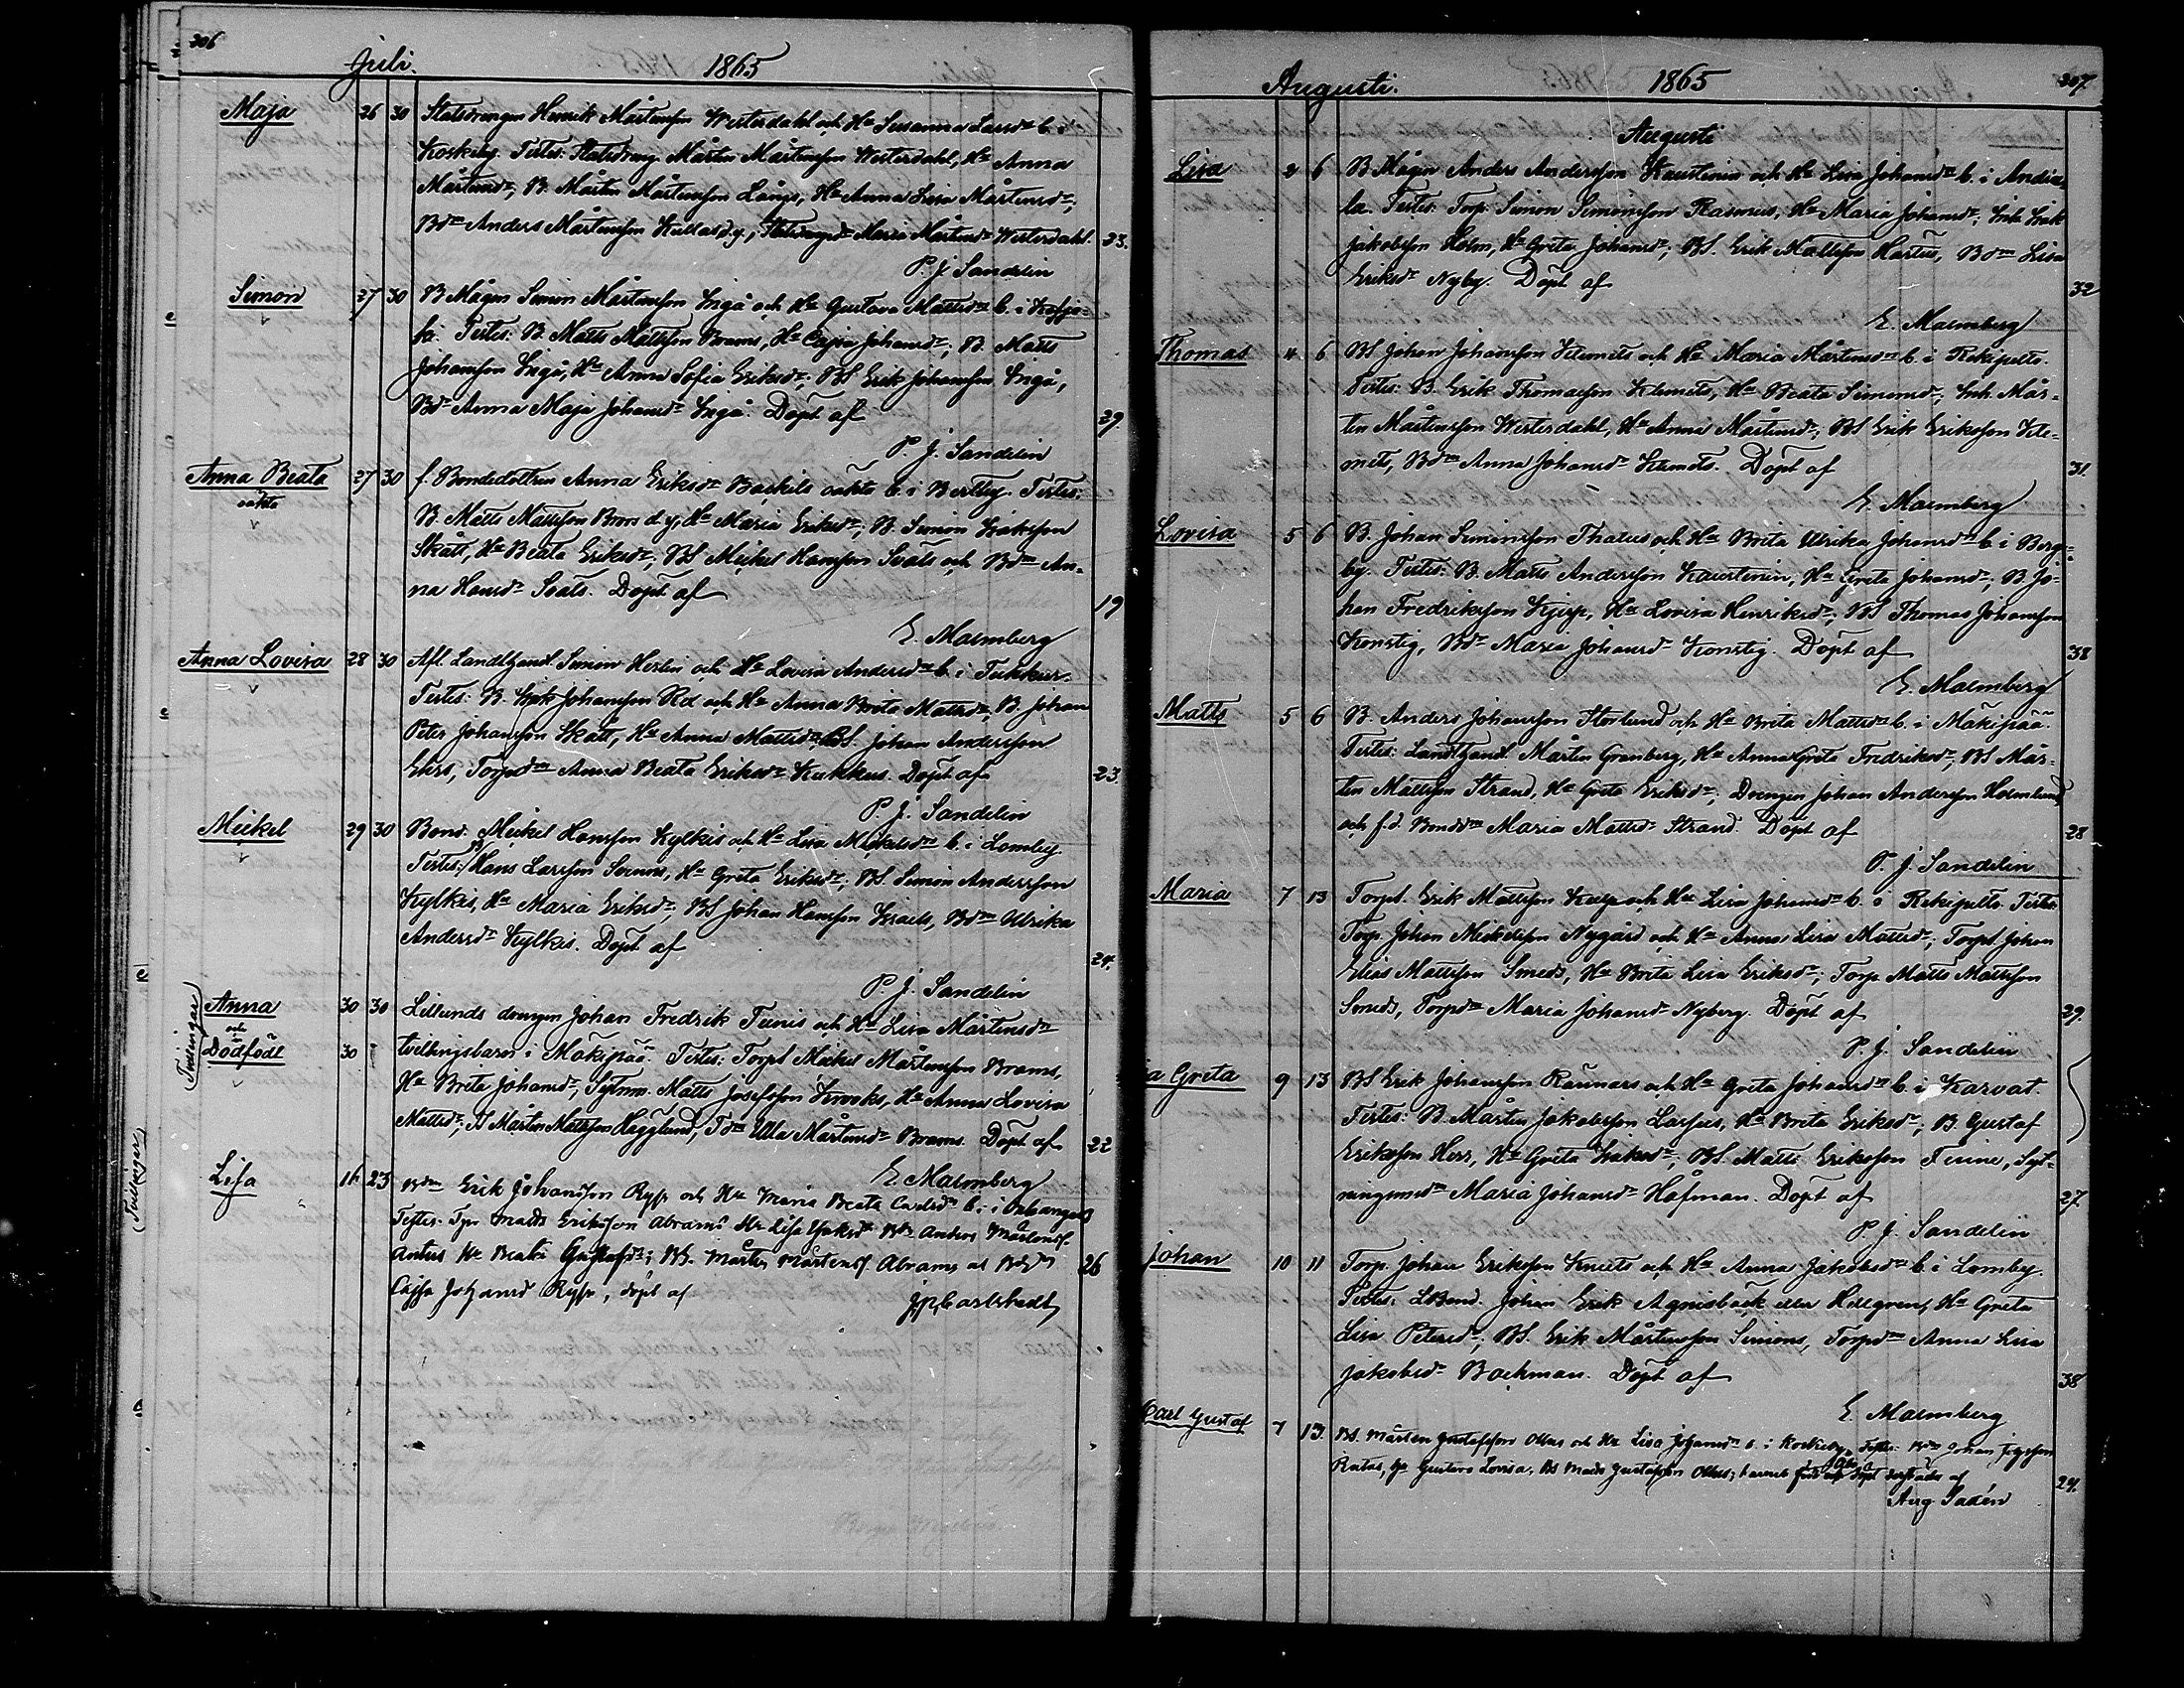 306
Juli. 1865
Maja 26 30 Statsdrengen Henrik Mårtensson Westerdahl och Hu Susanna Larsdr b. i
Koskeby. Testes: Statsdreng Mårten Mårtensson Westerdahl, Hu Anna
Mårtensdr; B. Mårten Mårtensson Långs, Hu Anna Lisa Mårtensdr;
Bdn Anders Mårtensson Kullas d.y., Maria Mårtensdr Westerdahl. 23.
P. J. Sandelin
Simon 27 30 B Mågen Simon Mårtensson Ingå och Hu Gustava Mattsdr b. i
Testes: B. Matts Mattsson Brams, Hu Cajsa Johansdr; B. Matts
Johansson Ingå, Hu Anna Sofia Eriksdr; BS Erik Johansson Ingå,
Bdr Anna Maja Johansdr Ingå. Döpt af 29
P. J. Sandelin
Anna Beata 27 30 f. Bondedottren Anna Eriksdr Backils oäkta b. i Bertby. Testes:
oäkta
B. Matts Mattsson Brors d.y, Hu Maria Eriksdr; B. Simon Isaksson
Skått, Hu Beata Eriksdr; BS Mickel Hansson Svals och Bdn An-
na Hansdr Svals. Döpt af 19
E. Malmberg
Anna Lovisa 28 30 Afl. Landthandl. Simon Herlin och Hu Lovisa Andersdr b. i Tukkur.
Testes: B. Isak Johansson Rex och Hu Anna Brita Mattsdr, B. Johan
Peter Johansson Skått, Hu Anna Mattsdr; BS. Johan Andersson
Elers, Torpdn Anna Beata Eriksdr Kukkus. Döpt af 23.
P. J. Sandelin
Mickel 29 30 Bond. Mickel Hansson Kylkis och Hu Lisa Mickelsdr b. i Lomby.
Testes: B Hans Larsson Svens, Hu Greta Eriksdr; BS. Simon Andersson
Kylkis, Hu Maria Eriksdr; BS Johan Hansson Knuts, Bdn Ulrika
Andersdr Kylkis. Döpt af 24.
P. J. Sandelin
Anna 30 30 Lillunds drengen Johan Fredrik Tunis och Hu Lisa Mårtensdr
och
Dödfödt 30 tvillingsbarn i Mäkipää. Testes: Torpt Mickel Mårtensson Brams,
(Tvillingar)
Hu Brita Johansdr, Sytnm. Matts Josefsson Krooks, Hu Anna Lovisa
Mattsdr; TS Mårten Mattsson Hägglund, Tdn Ulla Mårtensdr Brams. Döpt af 22
E Malmberg
(Tvillingar)
Lisa 16 23 Bdn Erik Johansson Ryss och Hu Maria Beata b. i Oxkangar
Testes: Tpr Matts Eriksson Abrams Hu Lisa Isaksdr Bdn Anders Mårtens
Antus Hu Beata Gustafsdr; BS. Mårten Mårtens Abrams at Bdr
Cajsa Johansd Ryss, döpt af 26
Carlstedt
307
Augusti. 1865
Augusti
Lisa 2 6 B Mågen Anders Andersson Kaustinen och Hu Lisa Johansdr b. i Andia-
la. Testes: Torp. Simon Simonsson Rasmus, Hu Maria Johansdr; Inh. Isak
Jakobsson Holm, Hu Greta Johansdr; BS. Erik Mattsson Hartus, Bdn Lisa
Eriksdr Nyby. Döpt af 32
E. Malmberg
Thomas 4 6 BS Johan Johansson Klemets och Hu Maria Mårtensdr b. i Rekipelto.
Testes: B. Erik Thomasson Klemets, Hu Beata Simonsd; Inh. Mår-
ten Mårtensson Westerdahl, Hu Anna Mårtensdr; BS Erik Eriksson Kle-
mets, Bdn Anna Johansdr Klemets. Döpt af 31.
E. Malmberg
Lovisa 5 6 B. Johan Simonsson Thatus och Hu Brita Ulrika Johansdr b. i Berg-
by. Testes: B. Matts Andersson Kaustinen, Hu Greta Johansdr; B. Jo-
han Fredriksson Kjerp, Hu Lovisa Henriksdr; BS Thomas Johansson
Konstig, Bdr Maria Johansdr Konstig. Döpt af 38
E. Malmberg
Matts 5 6 B. Anders Johansson Storlund och Hu Brita Mattsdr b. i Mäkipää.
Testes: Landthandl. Mårten Granberg, Hu Anna Greta Fredriksdr; BS Mår-
ten Mattsson Strand, Hu Greta Eriksdr; Drengen Johan Andersson Holmlund
och f.d. Bonddn Maria Mattsdr Strand. Döpt af 28
P. J. Sandelin
Maria 7 13 Torpt. Erik Mattsson Kulp och Hu Lisa Johansdr b. i Rekipelto. Testes:
Torp. Johan Mickelsson Nygård och Hu Anna Lisa Mattsdr; Torpt Johan
Elias Mattsson Smeds, Hu Brita Lisa Eriksdr; Torp. Matts Mattsson
Smeds, Torpdn Maria Johansdr Nyberg. Döpt af 29.
P. J. Sandelin
a Greta 9 13 BS Erik Johansson Raunars och Hu Greta Johansdr b. i Karvat.
Testes: B. Mårten Jakobsson Lassus, Hu Brita Eriksdr; B. Gustaf
Eriksson Herr, Hu Greta Isaksdr; BS. Matts Eriksson Finne, Syt-
ningsmdn Maria Johansdr Håfman. Döpt af 27.
P. J. Sandelin
Johan 10 11 Torp. Johan Eriksson Knuts och Hu Anna Jakobsdr b. i Lomby.
Testes: LBond. Johan Erik Agnisbäck eller Hellgren, Hu Greta
Lisa Petersdr; BS. Erik Mårtensson Simons, Torpdn Anna Lisa
Jakobsdr Backman. Döpt af 38
E. Malmberg
Carl Gustaf 7 13. BS. Mårten Gustafsson Ollus och Hu Lisa Johansdr b. i Koskeby. Testes: Bdn Johan
Ratas, Hu Gustava Lovisa, BS Matts Gustafsson Ollus; barnet född och döpt af 24.
Aug. Sadén